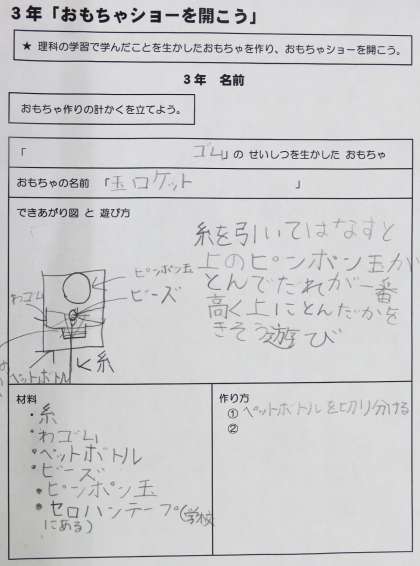 3年「おもちゃショーを開こう」
★ 理科の学習で学んだことを生かしたおもちゃを作り、おもちゃショーを開こう。
3年 名前
おもちゃ作りの計かくを立てよう。
「 ゴム」の せいしつを生かした おもちゃ
おもちゃの名前 「玉ロケット 」
できあがり図 と 遊び方
糸を引いてはなすと
上のピンポン玉が
とんでだれが一番
高く上にとんだかを
きそう遊び
ピンポン玉
わゴム
ビーズ
糸
ペットボトル
材料
・糸
・わゴム
・ペットボトル
・ビーズ
・ピンポン玉
・セロハンテープ(学校
にある)
作り方
①ペットボトルを切り分ける
②